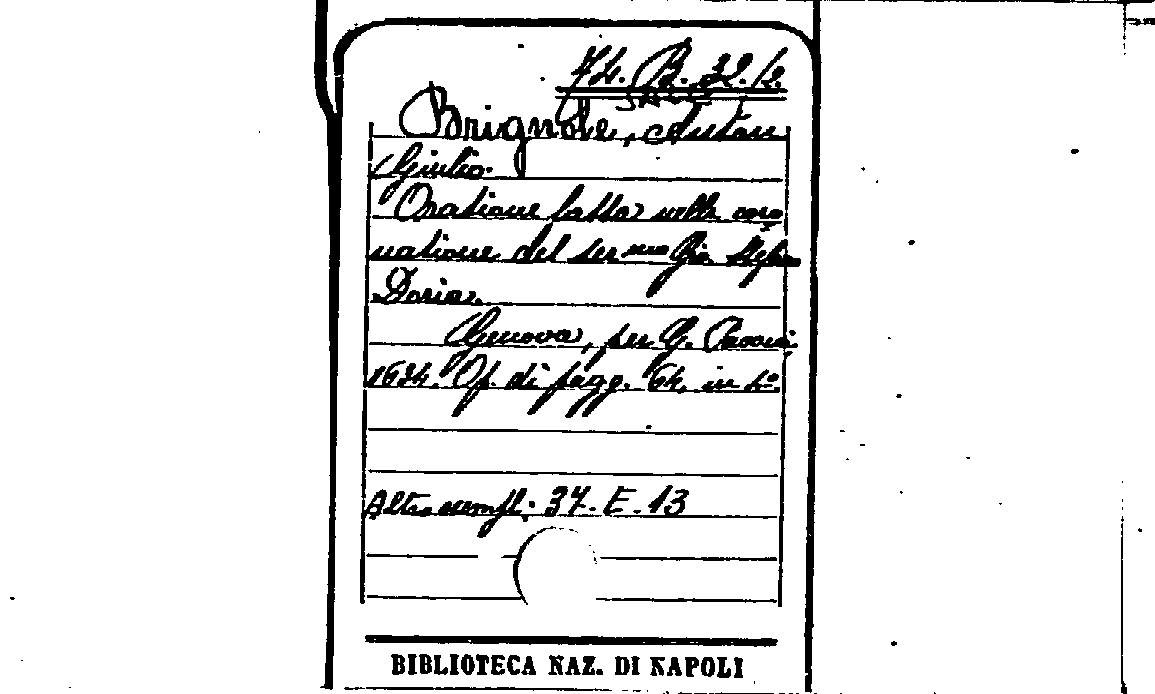 74. B. 32./2.
SALE
Brignole, Anton
Giulio.
Oratione fatta nella coro
natione del ser.mo Gio. Stefano
Doria.
Genova, per G. Pavoni
1634. Op. di pagg. 64. in 4º.
Altro esempl: 37. E. 13
BIBLIOTECA NAZ. DI NAPOLI